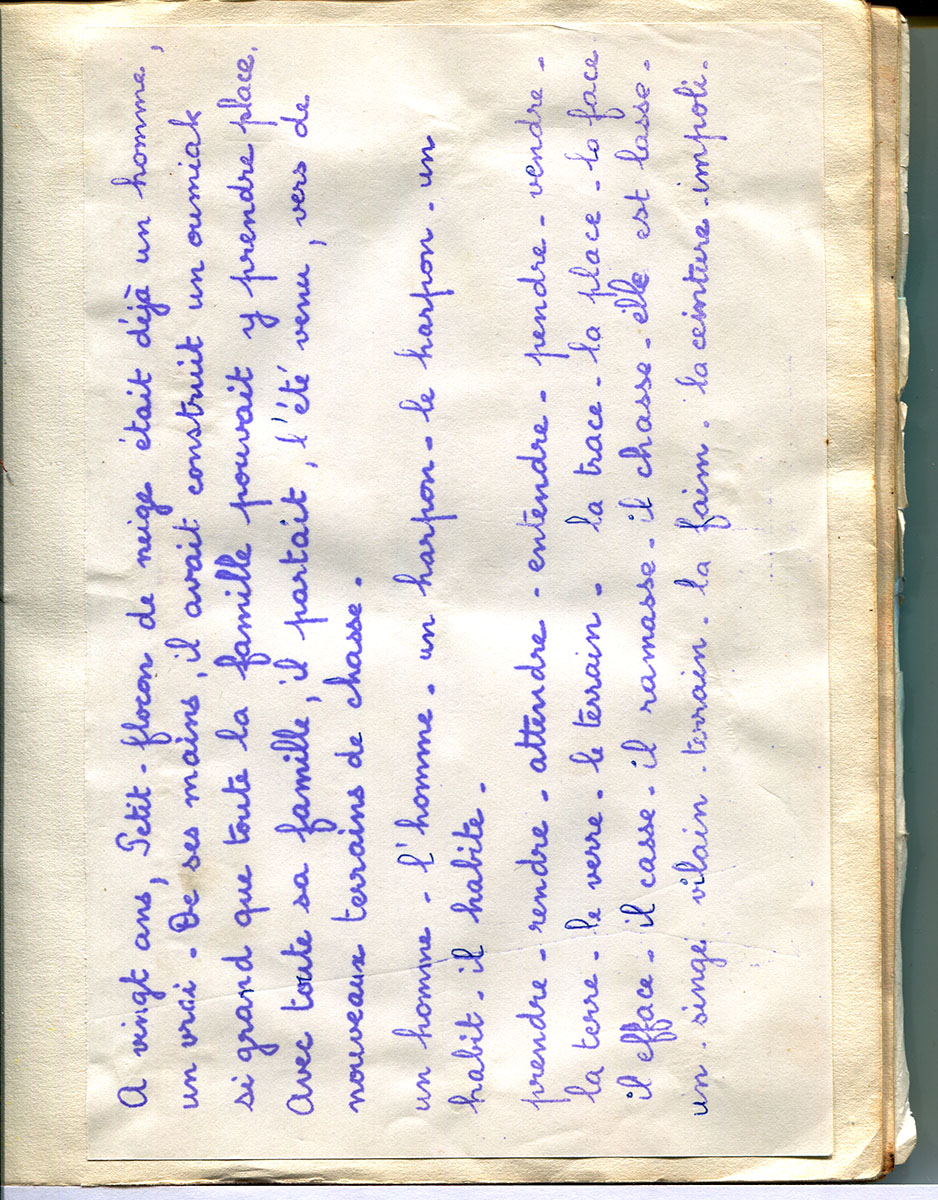 A vingt ans, Petit-flocon de neige était déjà un homme,
un vrai. De ses mains, il avait construit un oumiak
si grand que toute la famille pouvait y prendre place.
Avec toute sa famille, il partait, l'été venu, vers de
nouveaux terrains de chasse.
un homme - l'homme - un harpon - le harpon - un
habit - il habite -
prendre - rendre - attendre - entendre - pendre - vendre -
la terre - le verre - le terrain - la trace - la place - la face
il efface - il casse - il ramasse - il chasse - elle est lasse -
un singe vilain - terrain - la faim - la ceinture - impoli.